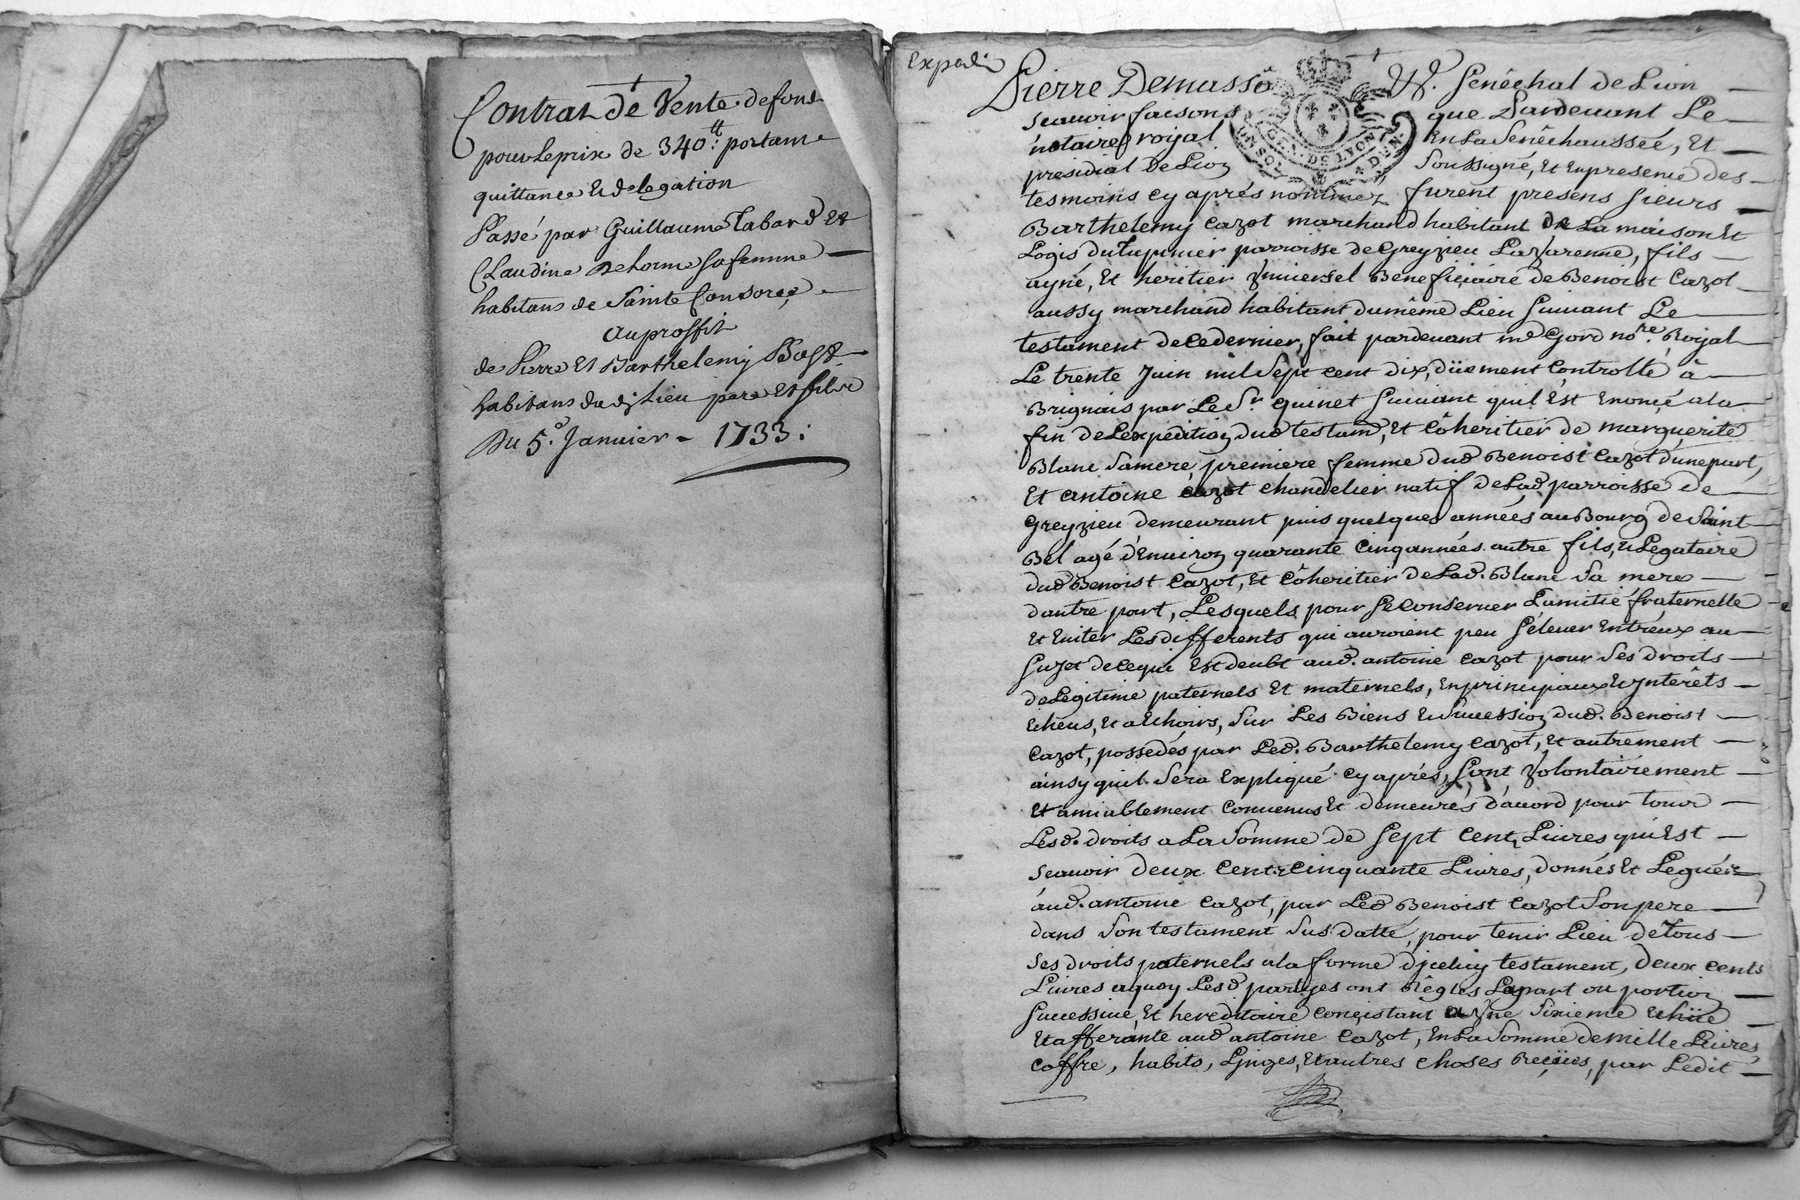 Contrat de Vente de fond
pour le prix de 340.tt portant
quittance et delegation
Passé par Guillaume Tabard et
Claudine Delorme sa femme
habitans de Sainte Consorce
au proffit
de Pierre et Barthelemy
habitans dud. Lieu pere et fils
Du 5.e Janvier - 1733.
Expedi
Pierre Demasso Sénéchal de Lion
scauoir faisons que Pardeuant Le
notaire royal En La Sénéchaussée, Et
presidial De Lion Soussigné, Et En presence des
tesmoins cy aprés nommez furent presens Sieurs
Barthelemy Cazot marchand habitant De La maison Et
Logis du Tupinier parroisse de Greyzieu Lavarenne, fils
ayné, Et heritier Vniuersel Beneficiaire de Benoist Cazot
aussy marchand habitant du même Lieu Suiuant Le
testament de Ce dernier, fait pardeuant me Gord no.re Royal
Le trente Juin mil Sept cent dix, düement Controllé â
Brignais par Le Sr. Quinet Suiuant quil Est Enoncé a la
fin de Lexpedition dud testamt, Et Côheritier de marguerite
Blanc Sa mere, premiere femme dud Benoist Cazot d'une part,
Et antoine Cazot chandelier natif de Lad parroisse de
Greyzieu demeurant puis quelques années au Bourg de Saint
Bel agé d'Enuiron quarante cinq années autre fils, et Legataire
dud Benoist Cazot, Et Côheritier de Lad. Blanc Sa mere
dautre part, Lesquels pour Se Conseruer L'amitié fraternelle
Et Euiter Les differents qui auroient peu S'éleuer Entr'eux au
Sujet de Ce qui Est deubt aud. antoine Cazot pour Ses droits
de Legitime paternels Et maternels, En principaux Et Jnterêts
Echeus, Et a Echoirs, Sur Les Biens Et Succession dud. Benoist
Cazot, possedés par Led. Barthelemy Cazot, Et autrement
ainsy quil Sera Expliqué Cy aprés, Sont Volontairement
Et amiablement Conuenus Et demeurés d'acord pour tous
Lesd. droits a La Somme de Sept Cent Liures qui Est
Scauoir deux Cent Cinquante Liures, donnés Et Legués
âud. antoine Cazot, par Led Benoist Cazot Son pere
dans Son testament Sus datté, pour tenir Lieu de tous
Ses droits paternels a la forme d'jceluy testament, deux cents
Liures a quoy Lesd parties ont Réglés La part ou portion
Successiue, Et hereditaire Conçistant a Vne Sixieme Echüe
Et afferante aud antoine Cazot, En La Somme de mille Liures,
Coffre, habits, Linges, Et autres choses Reçües, par Ledit